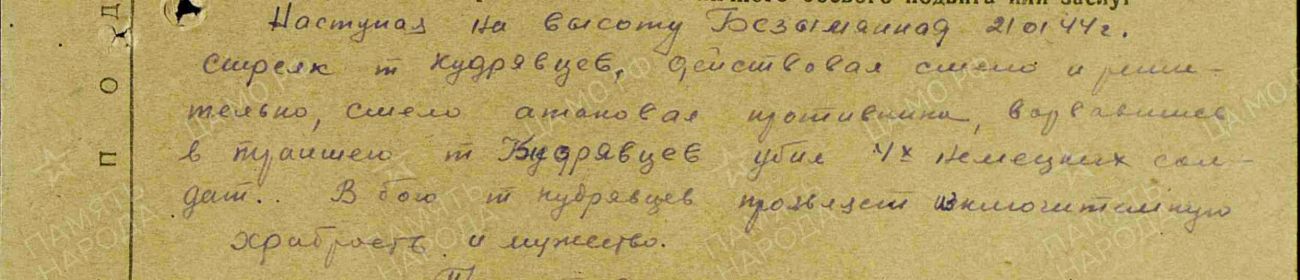 личного боевого подвига или заслуг
Наступая на высоту Безымянная 21 01 44 г.
стрелк т Кудрявцев, действовал смело и реши-
тельно, смело атаковал противника, ворвавшись
в траншею т Кудрявцев убил 4х немецких сол-
дат.. В бою т Кудрявцев проявляет исключительную
храбрость и мужество.
П О Д
ПАМЯТЬ НАРОДА
ЦАМО РФ